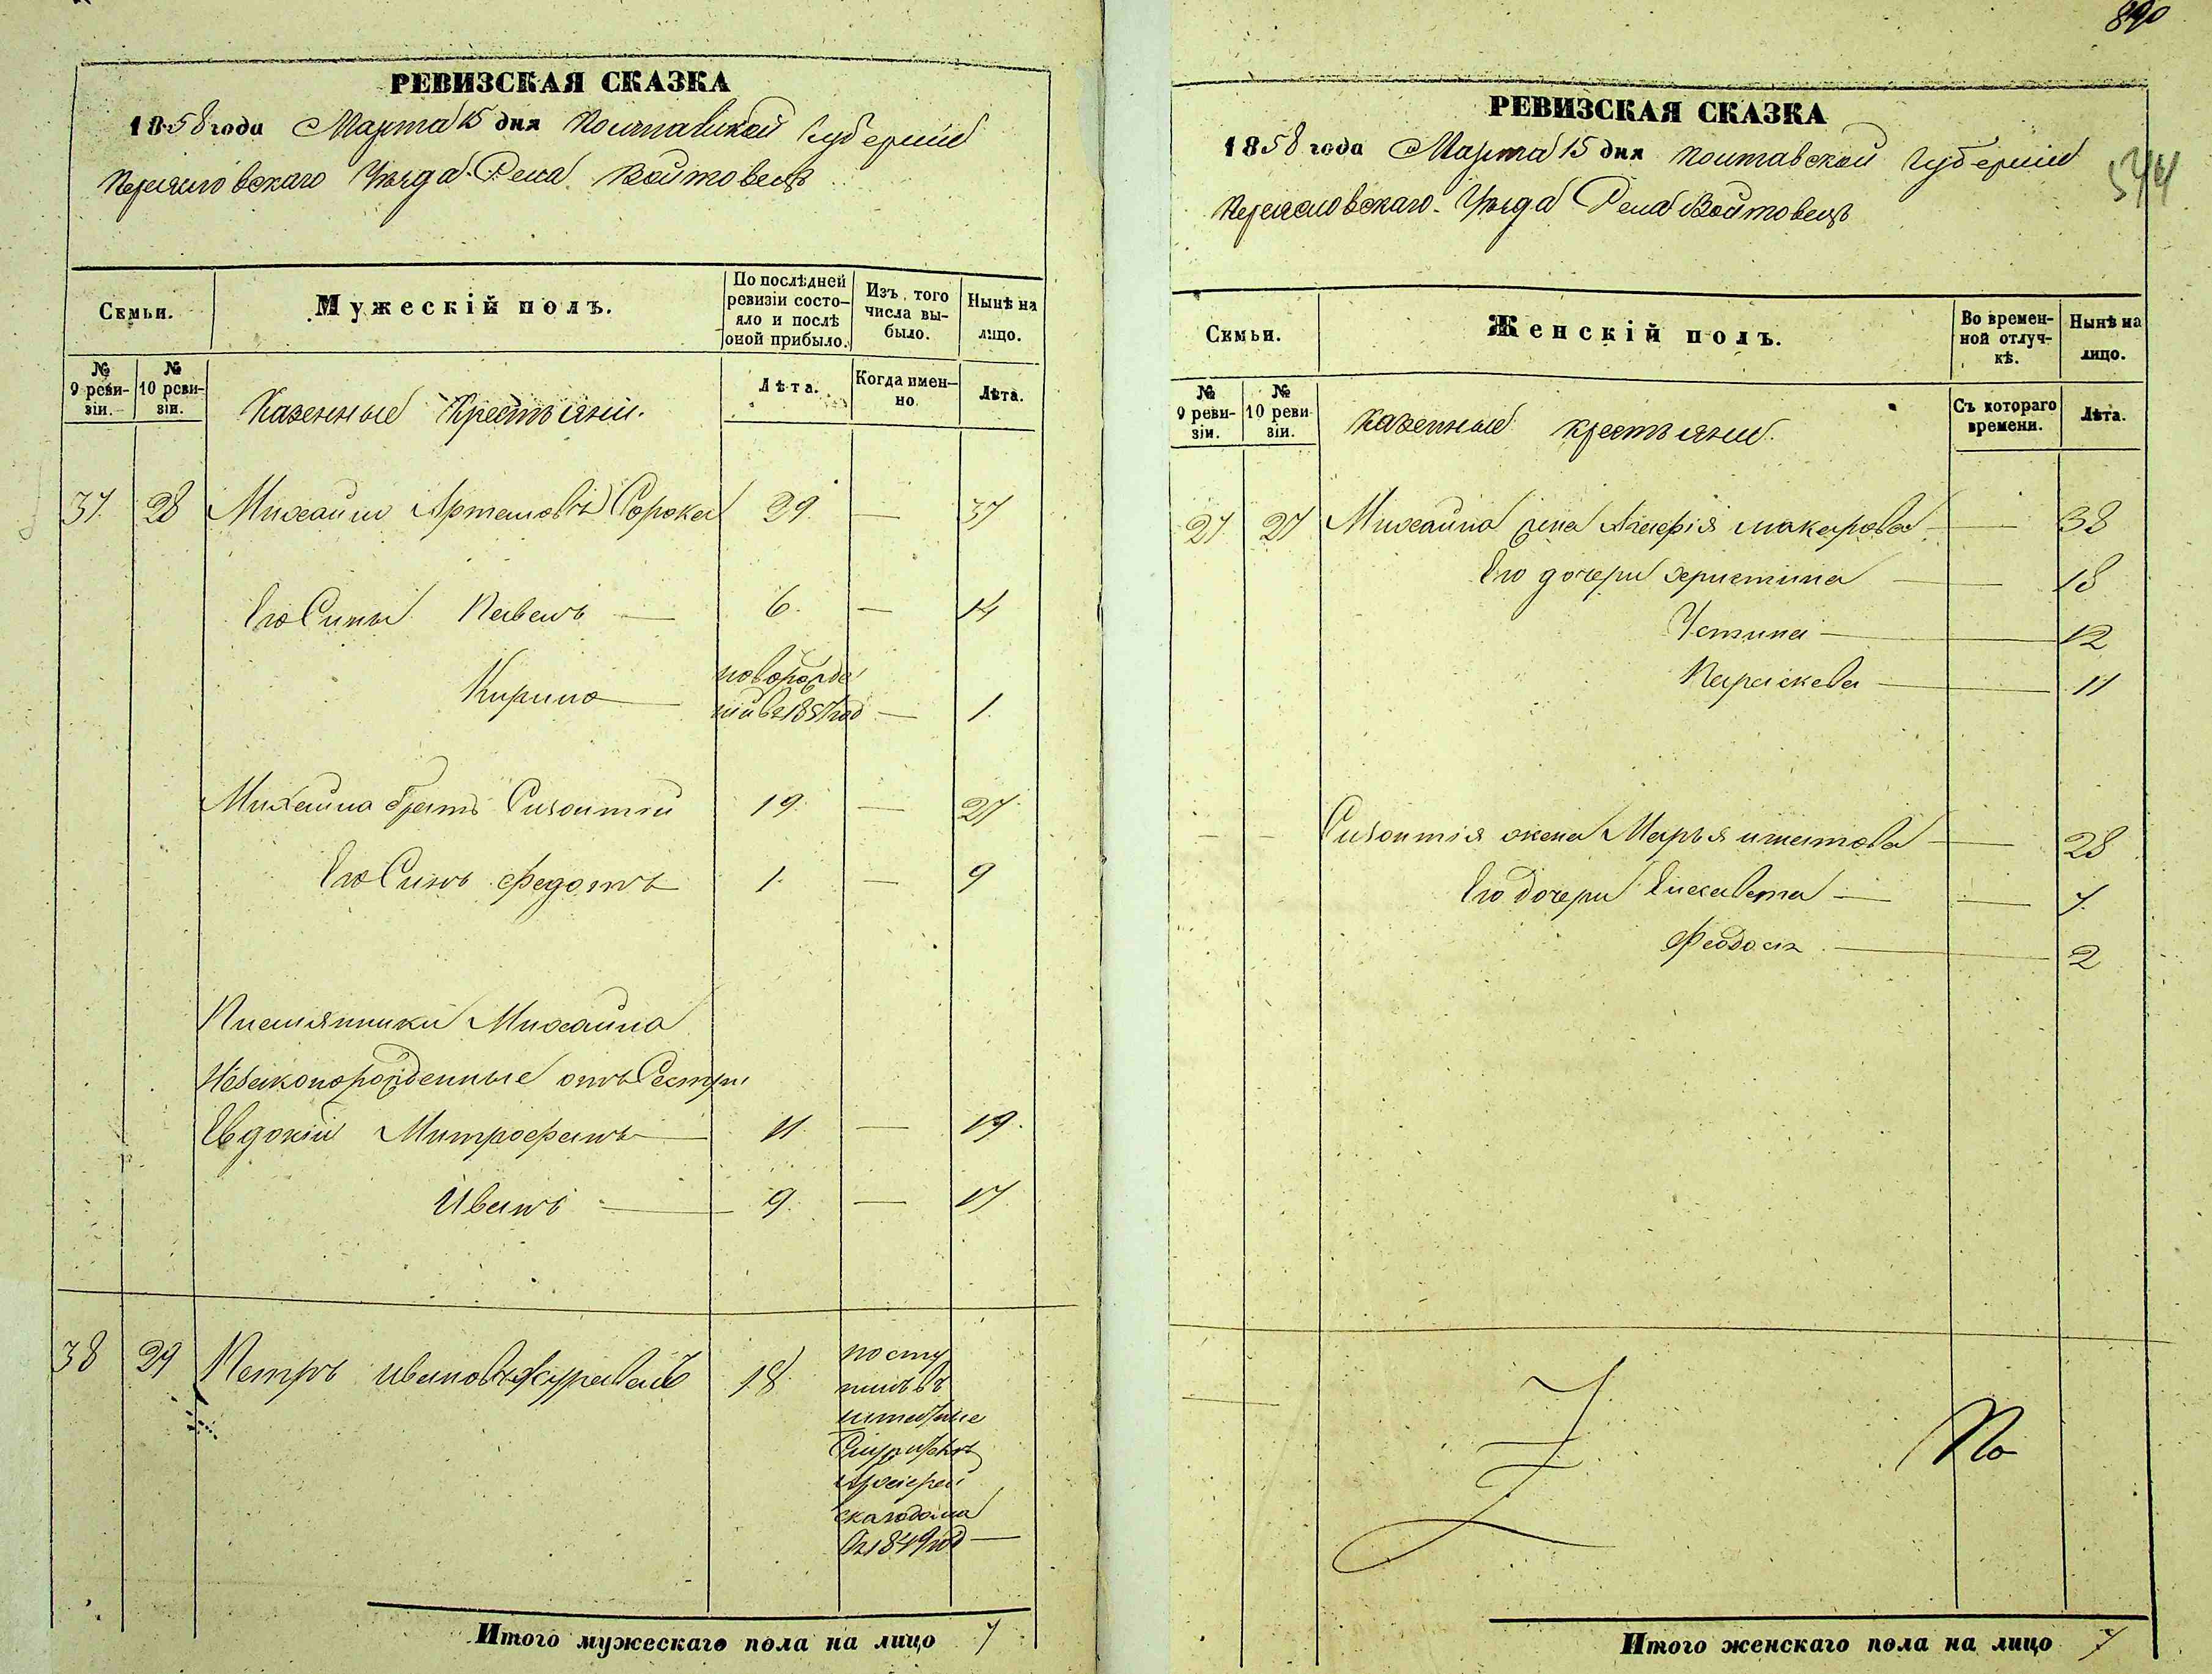 РЕВИЗСКАЯ СКАЗКА
1858 года Марта 15 дня Полтавской Губерніи
Переяславскаго Уѣзда Села Войтовецъ
Семьи.
Мужескій полъ.
По послѣдней ревизіи состояло и послѣ оной прибыло.
Изъ того числа выбыло.
Нынѣ на лицо.
№ 9 ревизіи.
№ 10 ревизіи.
Казенные Крестьяни.
Лѣта.
Когда именно.
Лѣта.
37. 28 Михайло Артемовъ Сорока 29. — 37
Его Сины Павелъ — 6. — 14
Кирило — новорожденій въ 1857 год — 1.
Михаила братъ Силоитій 19. — 27.
Его Синъ Федотъ 1. — 9
Племянники Михаила
Незаконорожденные отъ Сестри
Евдокіи Митрофанъ — 11. — 19.
Иванъ — 9. — 17
38 29 Петръ Ивановъ Журавель 18.
посту
пилъ въ
скагодома
въ 1849 год —
Итого мужескаго пола на лицо 7
890
544
РЕВИЗСКАЯ СКАЗКА
1858 года Марта 15 дня Полтавской Губерніи
Переясловскаго Уѣзда Села Войтовецъ
Семьи.
Женскій полъ.
Во временной отлучкѣ.
Нынѣ на лицо.
№ 9 ревизіи.
№ 10 ревизіи.
Казенные крестьяни.
Съ котораго времени.
Лѣта.
27 27 Михайла жена Агафія Макарова — 38
Его дочери Христина — 18
Устина — 12
Параскева — 11
— — Силоитія жена Марья Игнатова — 28
Его дочери Елисавета — — 7.
Феодося — 2
По
Итого женскаго пола на лицо 7